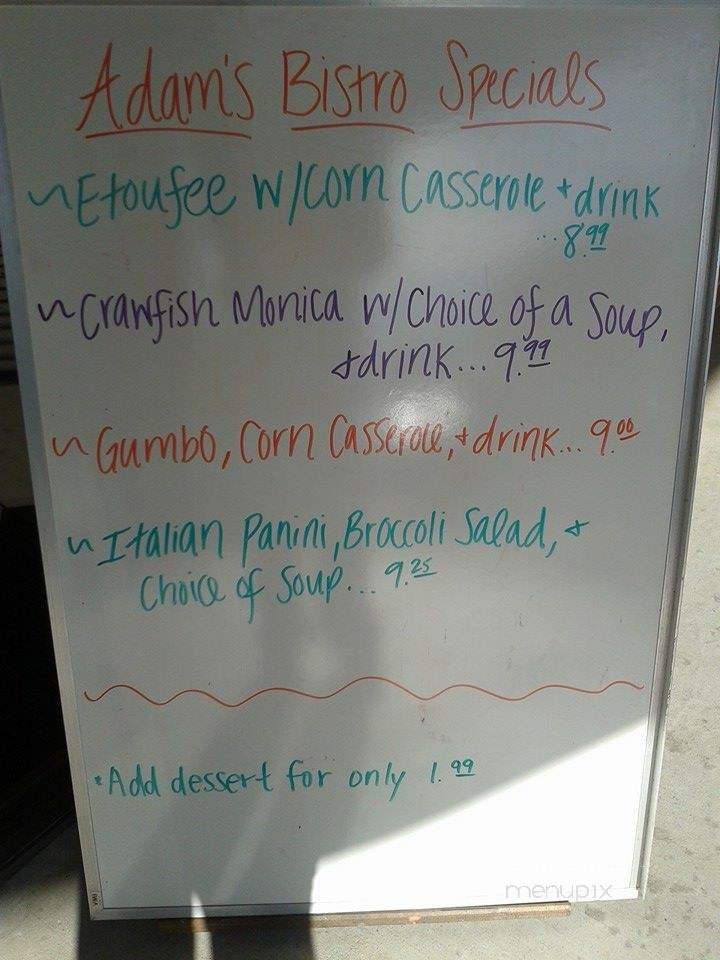 Adam's Bistro Specials
~Etoufee w/corn Casserole + drink
...8.99
~Crawfish Monica w/Choice of a Soup,
+drink...9.99
~Gumbo, Corn Casserole, + drink...9.00
~Italian Panini, Broccoli Salad, +
Choice of Soup...9.25
*Add dessert for only 1.99
menupix